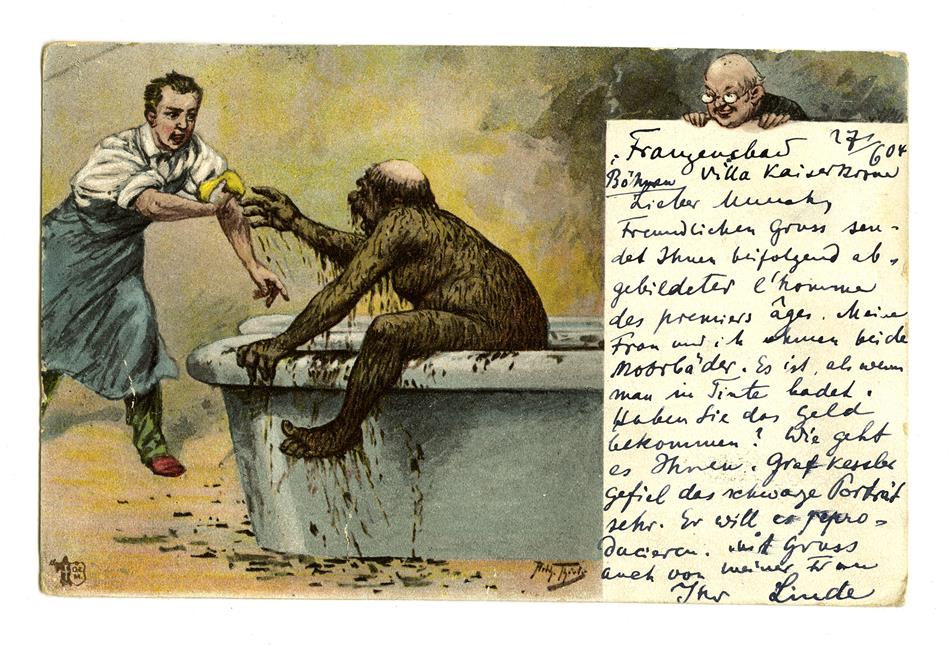 Franzensbad 27/6 04
Böhmen Villa Kaiserkrone
Lieber Munch,
Freundlichen Gruss sen-
det Ihnen beifolgend ab-
gebildeter l'homme
des premiers âges. Meine
Frau und ich nehmen beide
Moorbäder. Es ist, als wenn
man in Tinte badet.
Haben Sie das Geld
bekommen? Wie geht
es Ihnen. Graf Kessler
gefiel das schwarze Porträt
sehr. Er will es repro-
ducieren. Mit Gruss
auch von meiner Frau
Ihr Linde